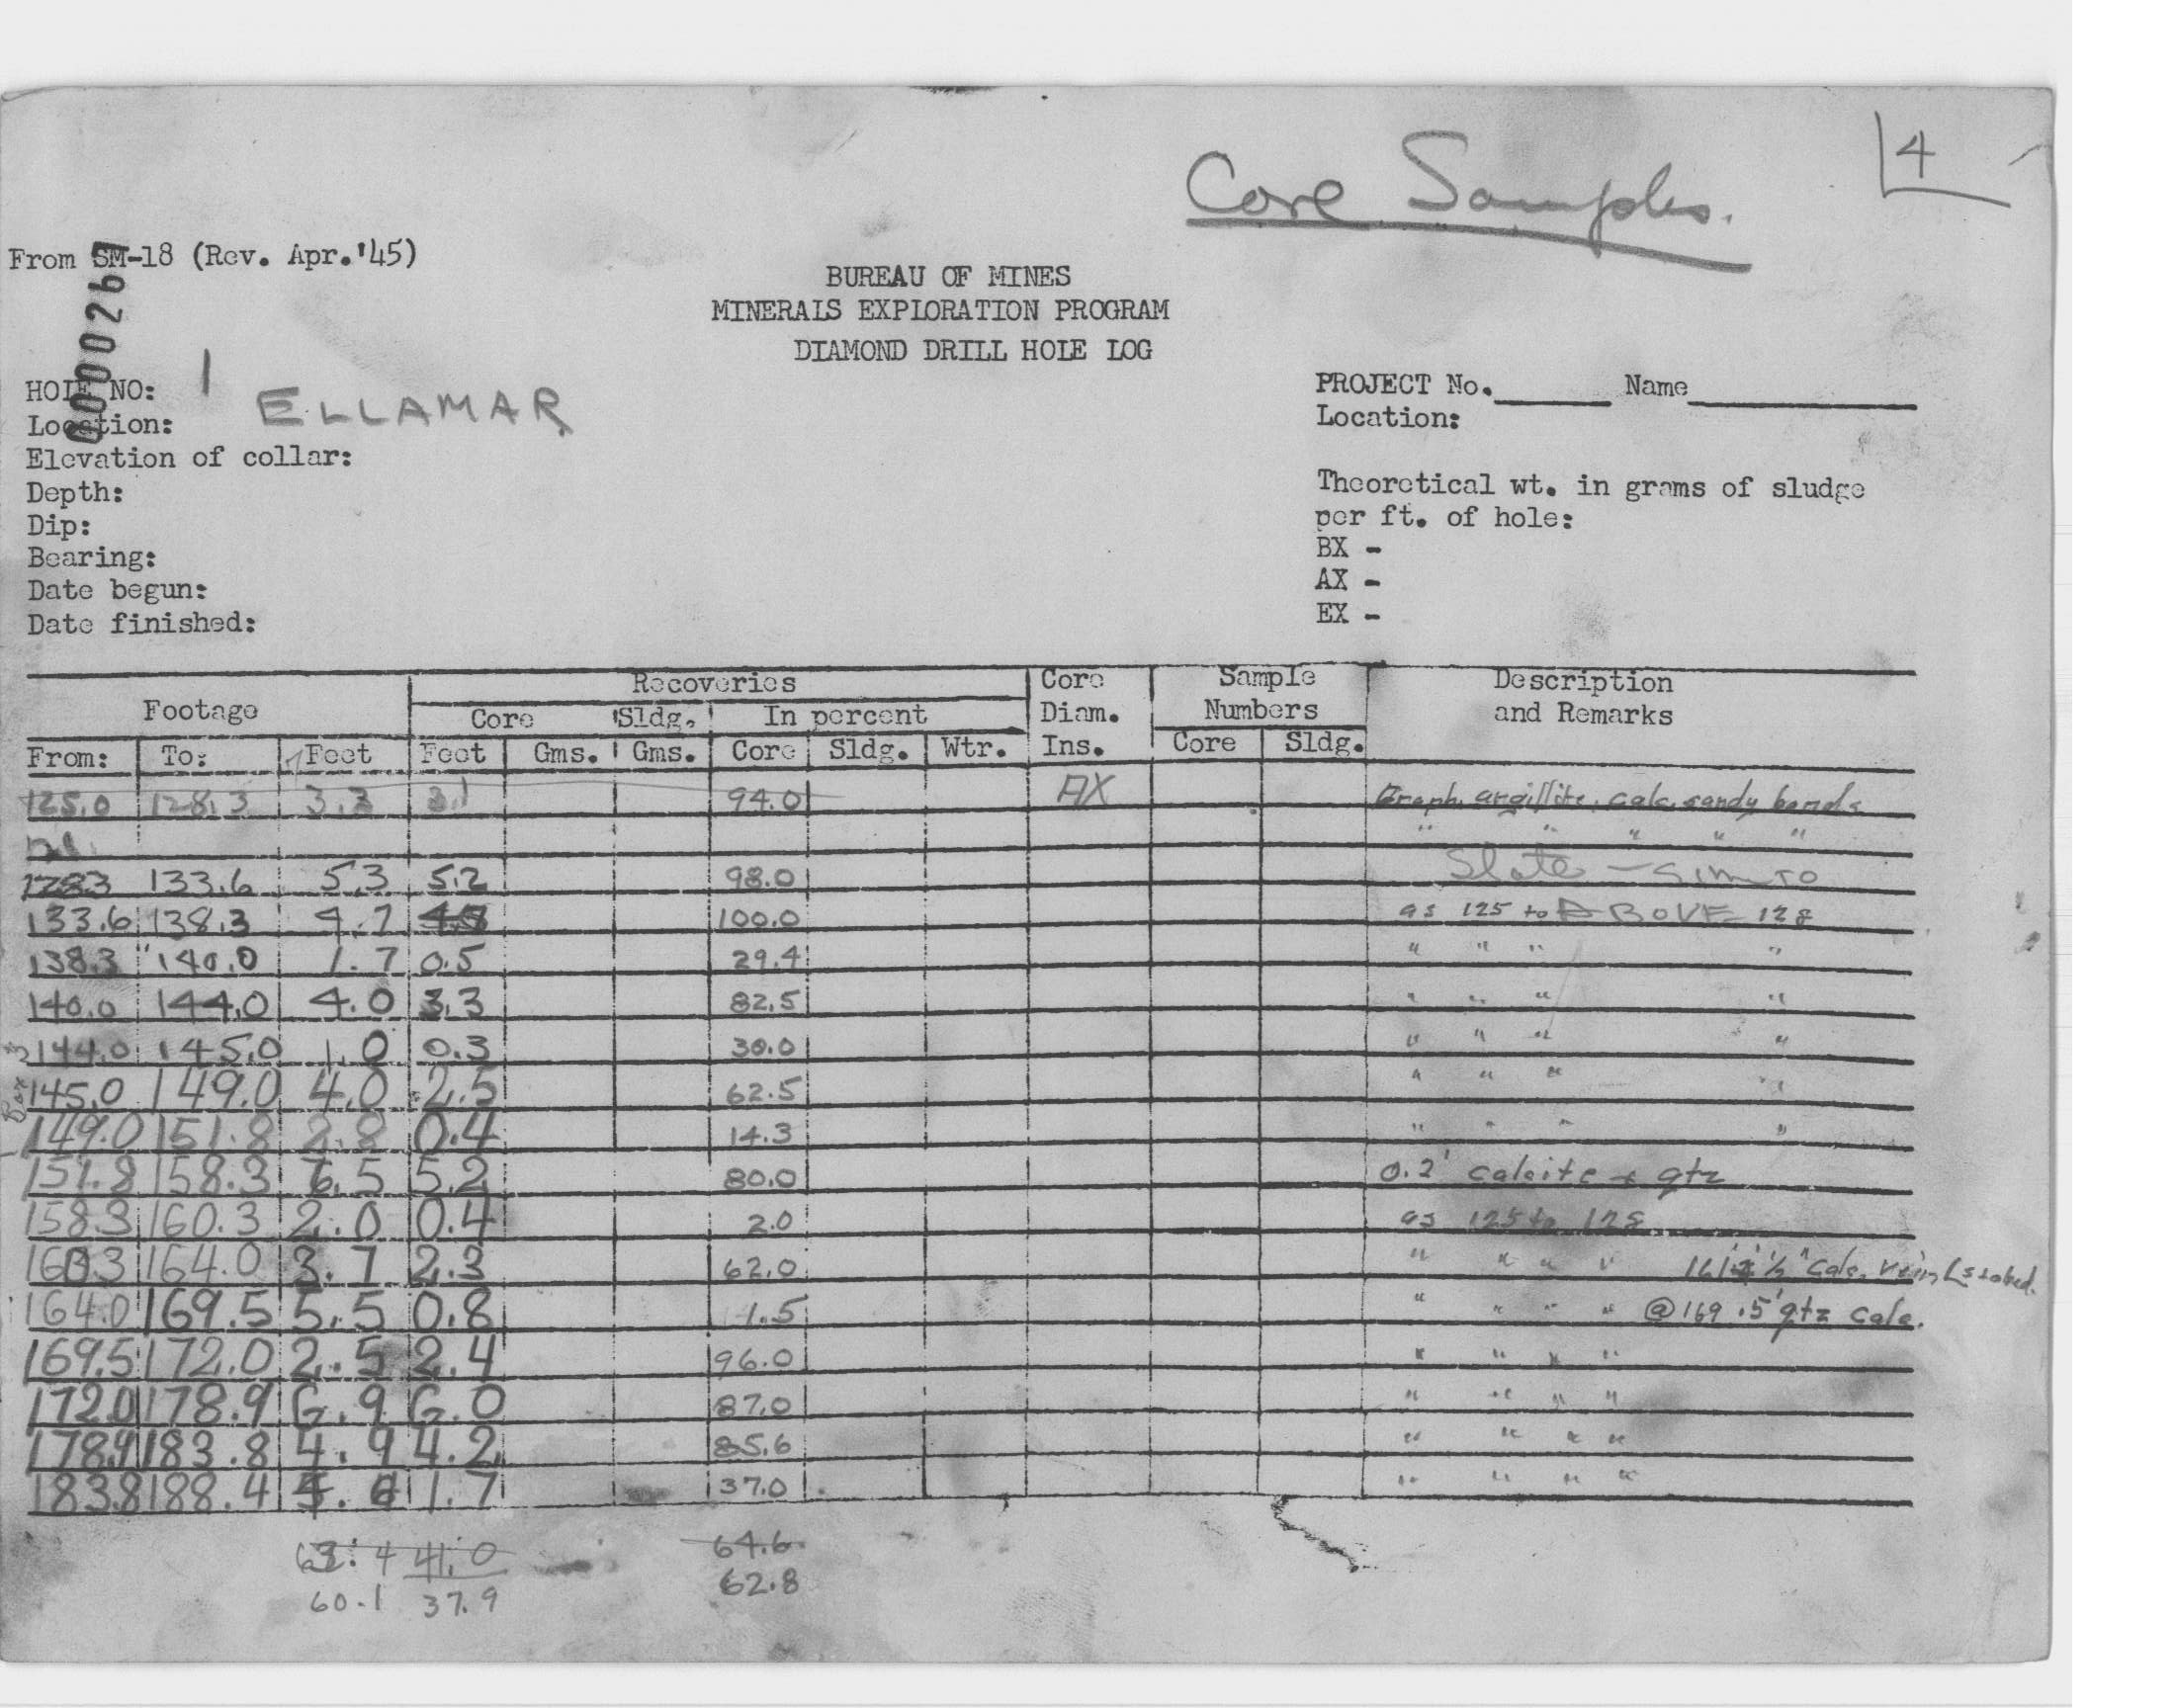 4
Core Samples.
From SM-18 (Rev. Apr.'45)
0000269
BUREAU OF MINES
MINERALS EXPLORATION PROGRAM
DIAMOND DRILL HOLE LOG
HOLE NO: 1
ELLAMAR
Location:
Elevation of collar:
Depth:
Dip:
Bearing:
Date begun:
Date finished:
PROJECT No. Name
Location:
Theoretical wt. in grams of sludge
per ft. of hole:
BX -
AX -
EX -
Footage Recoveries Core Sample Description
Core Sldg. In percent Diam. Numbers and Remarks
From: To: Feet Feet Gms. Gms. Core Sldg. Wtr. Ins. Core Sldg.
125.0 128.3 3.3 3.1 94.0 AX Graph. argillite, calc. sandy bands
" " " " "
128.3 133.6 5.3 5.2 98.0 Slate -
133.6 138.3 4.7 100.0 as 125 to ABOVE 128
138.3 140.0 1.7 0.5 29.4 " " " "
140.0 144.0 4.0 3.3 82.5 " " " "
144.0 145.0 1.0 0.3 30.0 " " " "
Box
145.0 149.0 4.0 2.5 62.5 " " " "
149.0 151.8 2.8 0.4 14.3 " " " "
151.8 158.3 6.5 5.2 80.0 0.2' calcite + qtz
158.3 160.3 2.0 0.4 2.0 as 125 to 128
160.3 164.0 3.7 2.3 62.0 " " " " 161 ½" calc. vein
164.0 169.5 5.5 0.8 1.5 " " " " @ 169 .5' qtz calc.
169.5 172.0 2.5 2.4 96.0 " " " "
172.0 178.9 6.9 6.0 87.0 " " " "
178.9 183.8 4.9 4.2 85.6 " " " "
183.8 188.4 4.6 1.7 37.0 " " " "
63.4 41.0 64.6
60.1 37.9 62.8